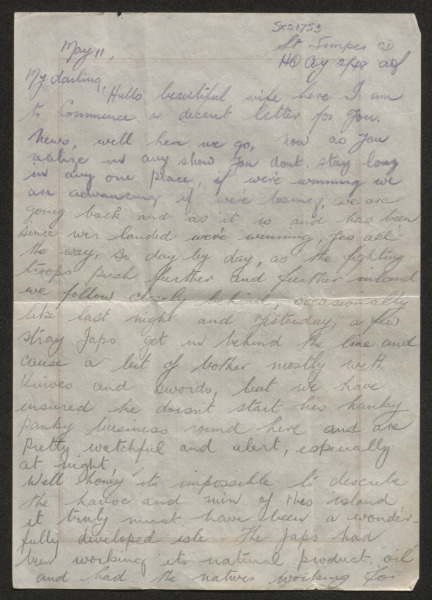 SX21753
May 11,
St Simpes
HQ Coy 2/48
My darling,
Hullo beautiful wife here I am
to commence a decent letter for you.
News, well here we go, now as you
realize in any show you dont stay long
in any one place, if we're winning we
are advancing if we're losing, we are
going back and as it is and has been
since we landed we're winning, yes all
the way, so day by day, as the fighting
troops push further and further inland
we follow closely behind, occasionally
like last night and yesterday, a few
stray Japs get in behind the line and
cause a bit of bother mostly with
knives and swords, but we have
insured he doesn't start his hanky
panky business round here and are
pretty watchful and alert, especially
at night.
Well honey it's impossible to describe
the havoc and ruin of this island
it truly must have been a wonder-
fully developed isle the Japs had
been working its natural product oil
and had the natives working for